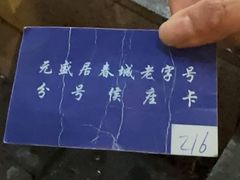 元盛居春城老字号
分号候座卡
216